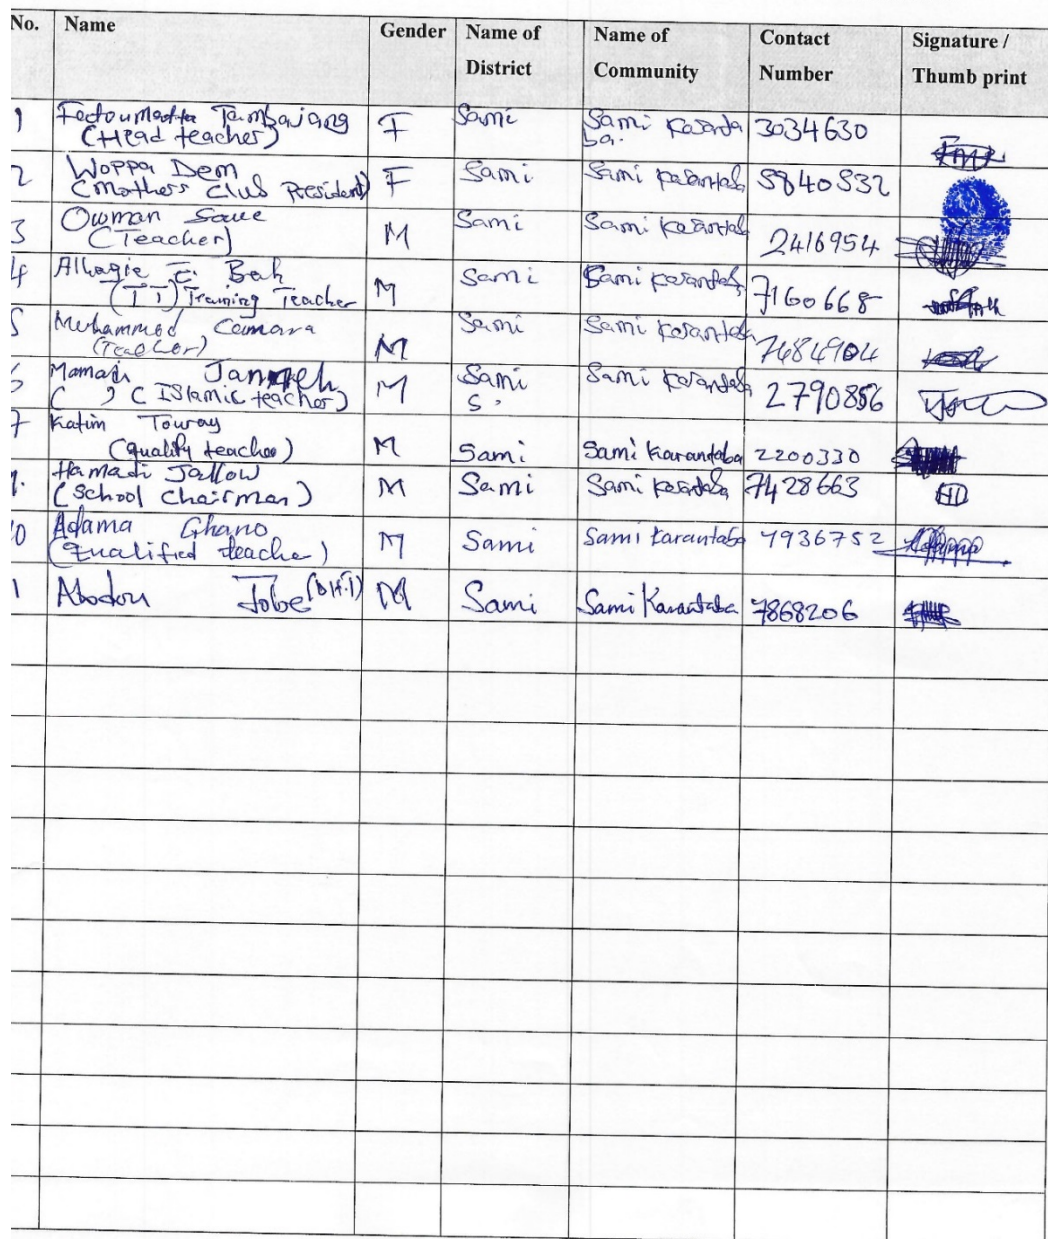 No. Name Gender Name of District Name of Community Contact Number Signature / Thumb print
1 Fatoumatta Tambajang (Head teacher) F Sami Sami Karanta ba. 3034630
2 Woppa Dem (Mothers Club President) F Sami Sami Karantaba 5840532
3 Ousman Sawe (Teacher) M Sami Sami Karantaba 2416954
4 Alhagie E. Bah (TT) Training Teacher M Sami Sami Karantaba 7160668
5 Muhammed Camara (Teacher) M Sami Sami Karantaba 7484904
6 Mamadi Janneh ( ) ( Islamic teacher) M Sami S, Sami Karantaba 2790856
7 Katim Touray (quality teacher) M Sami Sami Karantaba 2200330
Hamadi Jallow (School Chairman) M Sami Sami Karantaba 7428663 HJ
0 Adama Ghano (Qualified teacher) M Sami Sami Karantaba 7936752 Adama
1 Abdou Jobe (DHT) M Sami Sami Karantaba 7868206